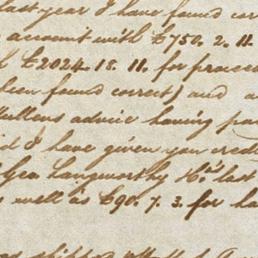 last year I have found cor
account with £750. 2. 11.
£2024. 18. 11. for proceed
been found correct) and a
Mullens advice having pa
I have given you credi
Geo Langworthy Ho^d last
s well as £90. 7. 3. for ha